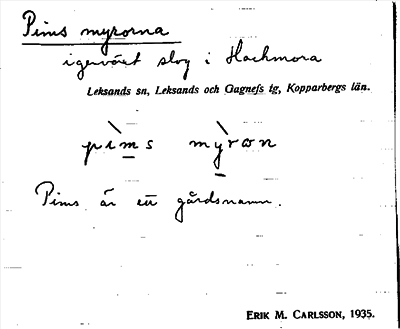 Pims myrorna
igenväxt slog i Hackmora
Leksands sn, Leksands och Gagnefs tg, Kopparbergs län.
pìms mỳron
Pims är ett gårdsnamn.
ERIK M. CARLSSON, 1935.